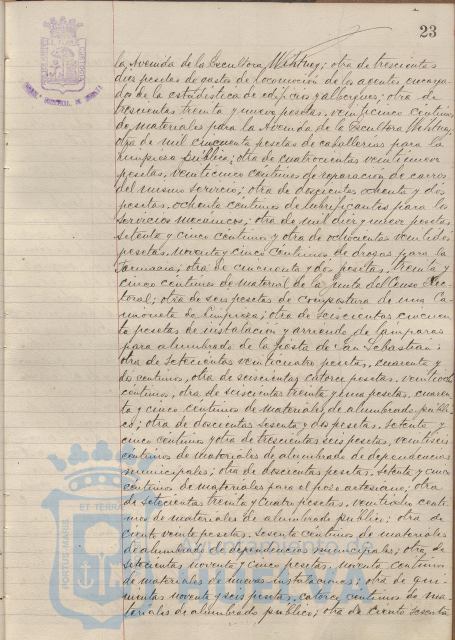 23
la Avenida de la Escultora Whitney; otra de trescientas
dos pesetas de gastos de locomoción de los agentes encarga-
dos de la estadística de edificios y albergues; otra de
trescientas treinta y nueve pesetas, veinticinco céntimos
de materiales para la Avenida de la Escultora Whitney,
otra de mil cincuenta pesetas de caballerías para la
limpieza pública; otra de cuatrocientas veintinueve
pesetas, veinticinco céntimos de reparación de carros
del mismo servicio; otra de doscientas ochenta y dos
pesetas, ochenta céntimos de lubrificantes para los
servicios mecánicos; otra de mil diez y nueve pesetas,
setenta y cinco céntimos y otra de ochocientas veintidós
pesetas, noventa y cinco céntimos de drogas para la
Farmacia, otra de cincuenta y dos pesetas, treinta y
cinco céntimos de material de la Junta del Censo Elec-
toral; otra de seis pesetas de compostura de una ca-
mioneta de limpieza; otra de seiscientas cincuenta
pesetas de instalación y arriendo de lámparas
para alumbrado de la fiesta de San Sebastián;
otra de setecientas veinticuatro pesetas, cuarenta y
dos céntimos, otra de seiscientas catorce pesetas, veintiocho
céntimos, otra de seiscientas treinta y una pesetas, cuaren-
ta y cinco céntimos de materiales de alumbrado públi-
co; otra de doscientas sesenta y dos pesetas, setenta y
cinco céntimos y otra de trescientas seis pesetas, veintiseis
céntimos de materiales de alumbrado de dependencias
municipales; otra de doscientas pesetas, setenta y cinco
céntimos de materiales para el pozo artesiano; otra
de setecientas treinta y cuatro pesetas, veintiocho cénti-
mos de materiales de alumbrado público; otra de
ciento veinte pesetas, sesenta céntimos de materiales
de alumbrado de dependencias municipales; otra de
setecientas noventa y cinco pesetas, noventa céntimos
de materiales de nuevas instalaciones; otra de qui-
nientas noventa y seis pesetas, catorce céntimos de ma-
teriales de alumbrado público; otra de ciento sesenta